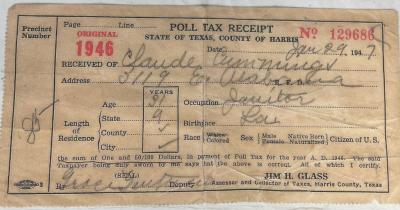 Page: Line: POLL TAX RECEIPT Nº 129686
Precinct Number ORIGINAL 1946 STATE OF TEXAS, COUNTY OF HARRIS
Date Jan 29 1947
RECEIVED OF Claude Cummings
Address 3119 E. Alabama
YEARS
Age Occupation Janitor
Length of Residence State 9 Birthplace
County ✓ Race White Colored Sex Male Female Native Born Naturalized Citizen of U.S.
City ✓
85
the sum of One and 50/100 Dollars, in payment of Poll Tax for the year A. D. 1946. The said
Taxpayer being duly sworn by me says that the above is correct. All of which I certify.
(SEAL) JIM H. GLASS
By Deputy Assessor and Collector of Taxes, Harris County, Texas